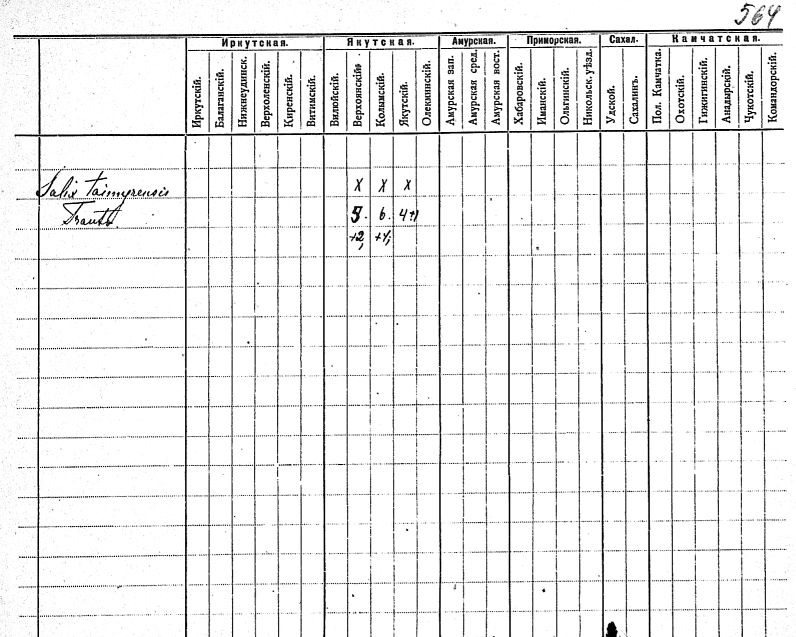 564
Иркутская. Якутская. Амурская. Приморская. Сахал. Камчатская.
Иркутскій. Балаганскій. Нижнеудинск. Верхоленскій. Киренскій. Витимскій. Вилюйскій. Верхоянскій. Колымскій. Якутскій. Олекминскій. Амурская зап. Амурская сред. Амурская вост. Хабаровскій. Иманскій. Ольгинскій. Никольск. уѣзд. Удской. Сахалинъ. Пол. Камчатка. Охотскій. Гижигинскій. Анадырскій. Чукотскій. Командорскій.
Salix taimyrensis x x x
Trautv. 5. 6. 4+1
+2, +4;